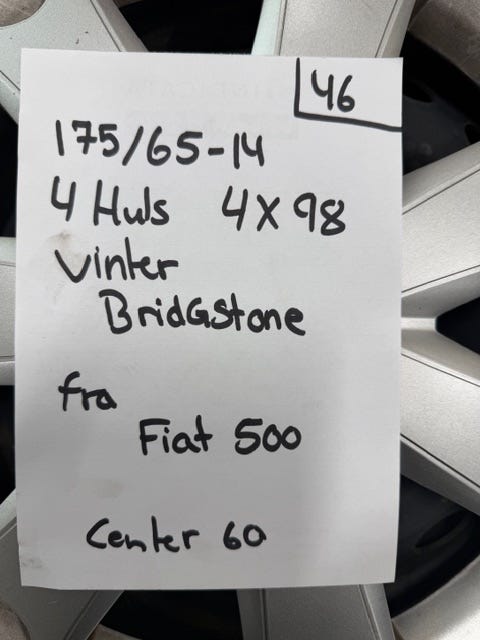 46
175/65-14
4 Huls 4x98
Vinter
BridGstone
fra
Fiat 500
Center 60